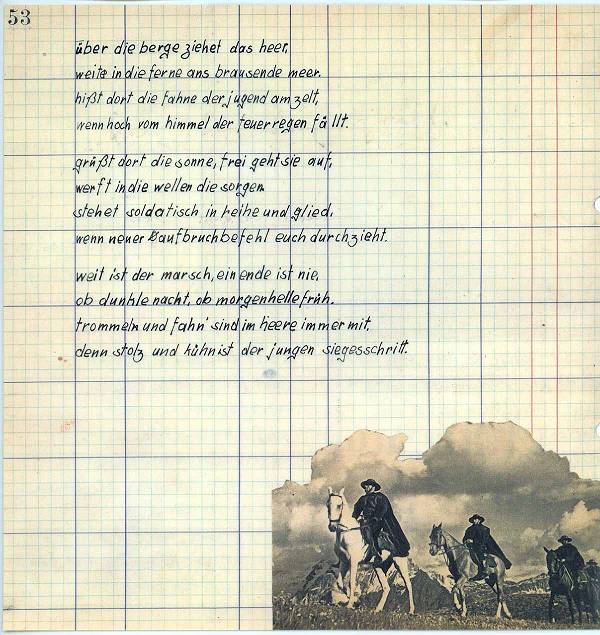 53
über die berge ziehet das heer,
weite in die ferne ans brausende meer.
hißt dort die fahne der jugend am zelt,
wenn hoch vom himmel der feuerregen fällt.
grüßt dort die sonne, frei geht sie auf,
werft in die wellen die sorgen.
stehet soldatisch in reihe und glied,
wenn neuer aufbruchbefehl euch durchzieht.
weit ist der marsch, ein ende ist nie,
ob dunkle nacht, ob morgenhelle früh.
trommeln und fahn' sind im heere immer mit,
denn stolz und kühn ist der jungen siegesschritt.